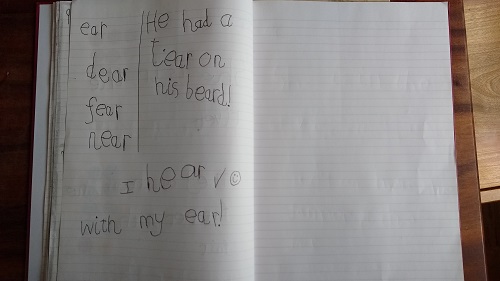 ear
dear
fear
near
He had a
tear on
his beard!
I hear ✓ ©
with my ear!